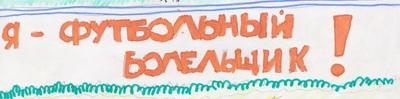 Я - ФУТБОЛЬНЫЙ
БОЛЕЛЬЩИК!